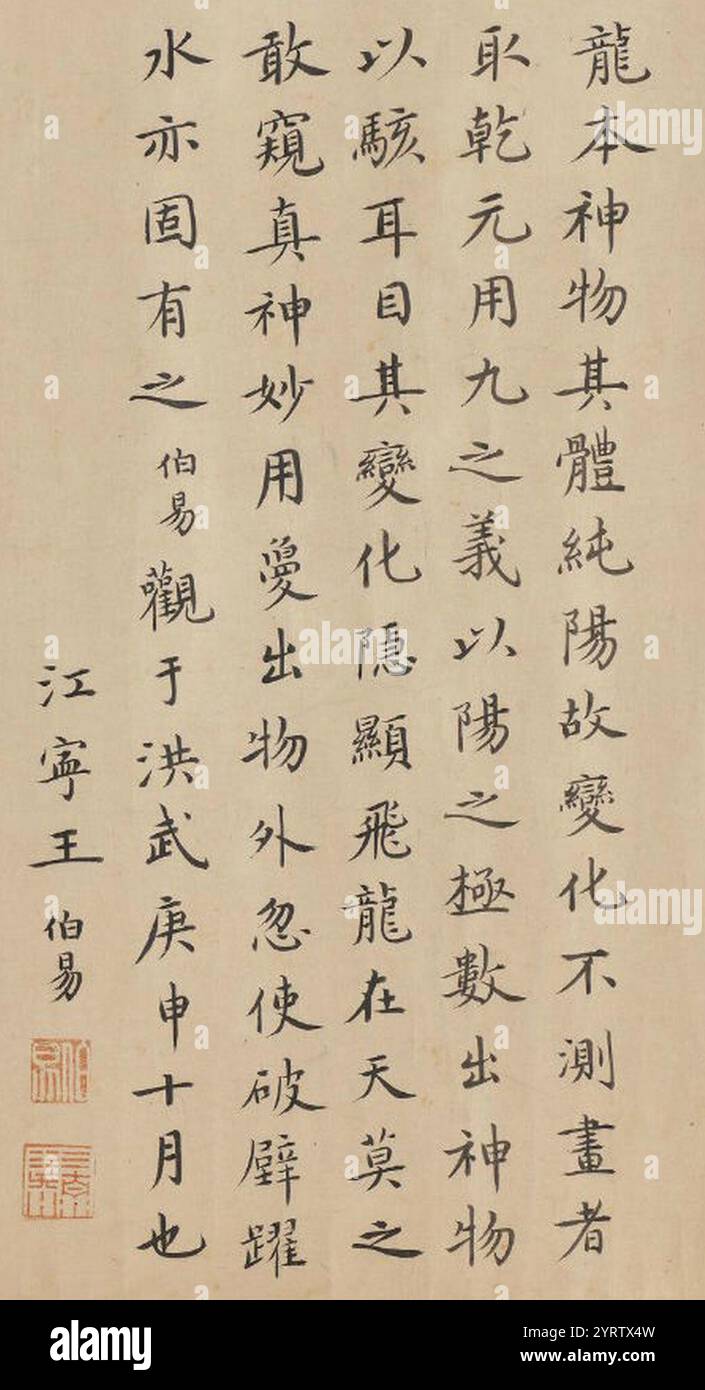 龍本神物其體純陽故變化不測畫者
取乾元用九之義以陽之極數出神物
以駭耳目其變化隱顯飛龍在天莫之
敢窺真神妙用爰出物外忽使破壁躍
水亦固有之伯易觀于洪武庚申十月也
江寧王伯易
alamy
Image ID: 2YRTX4W
www.alamy.com